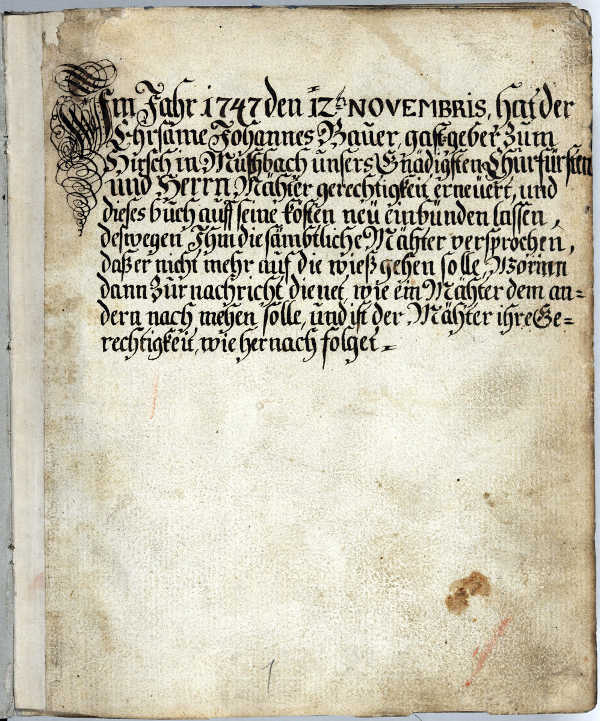 Im Jahr 1747 den 12t. NOVEMBRIS, hat der
Ehrsame Johannes Bauer, gastgeber zum
Hirsch in Mußbach unsers Gnädigsten Churfürsten
und Herrn Mähter gerechtigkeit erneuert, und
dieses buch auff seine kosten neu einbunden lassen,
deswegen Ihm die sämbtliche Mähter versprochen,
daß er nicht mehr auf die wieß gehen solle, Worinn
dann zur nachricht dienet, wie ein Mähter dem an=
dern nach meyen solle, und ist der Mähter ihre Ge=
rechtigkeit, wie hernach folget=
1